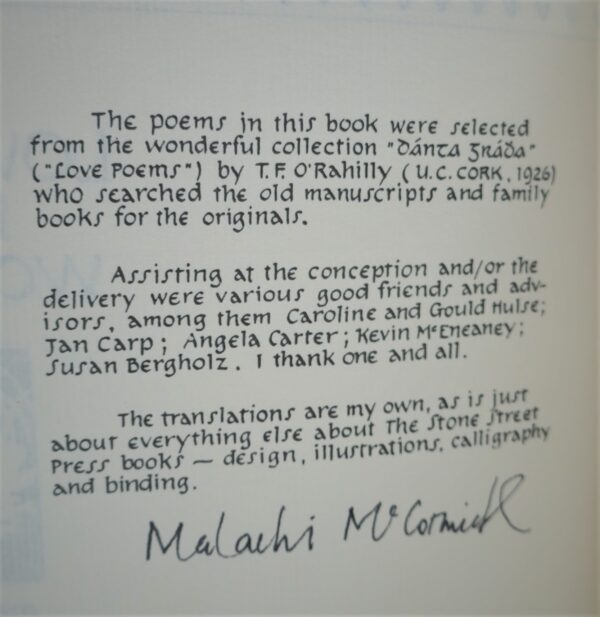 The poems in this book were selected
from the wonderful collection "Dánta Gráḋa"
("Love Poems") by T.F. O'Rahilly (U.C. CORK, 1926)
who searched the old manuscripts and family
books for the originals.
Assisting at the conception and/or the
delivery were various good friends and adv-
isors, among them Caroline and Gould Hulse;
Jan Carp; Angela Carter; Kevin McEneaney;
Susan Bergholz. I thank one and all.
The translations are my own, as is just
about everything else about The Stone Street
Press books — design, illustrations, calligraphy
and binding.
Malachi McCormick